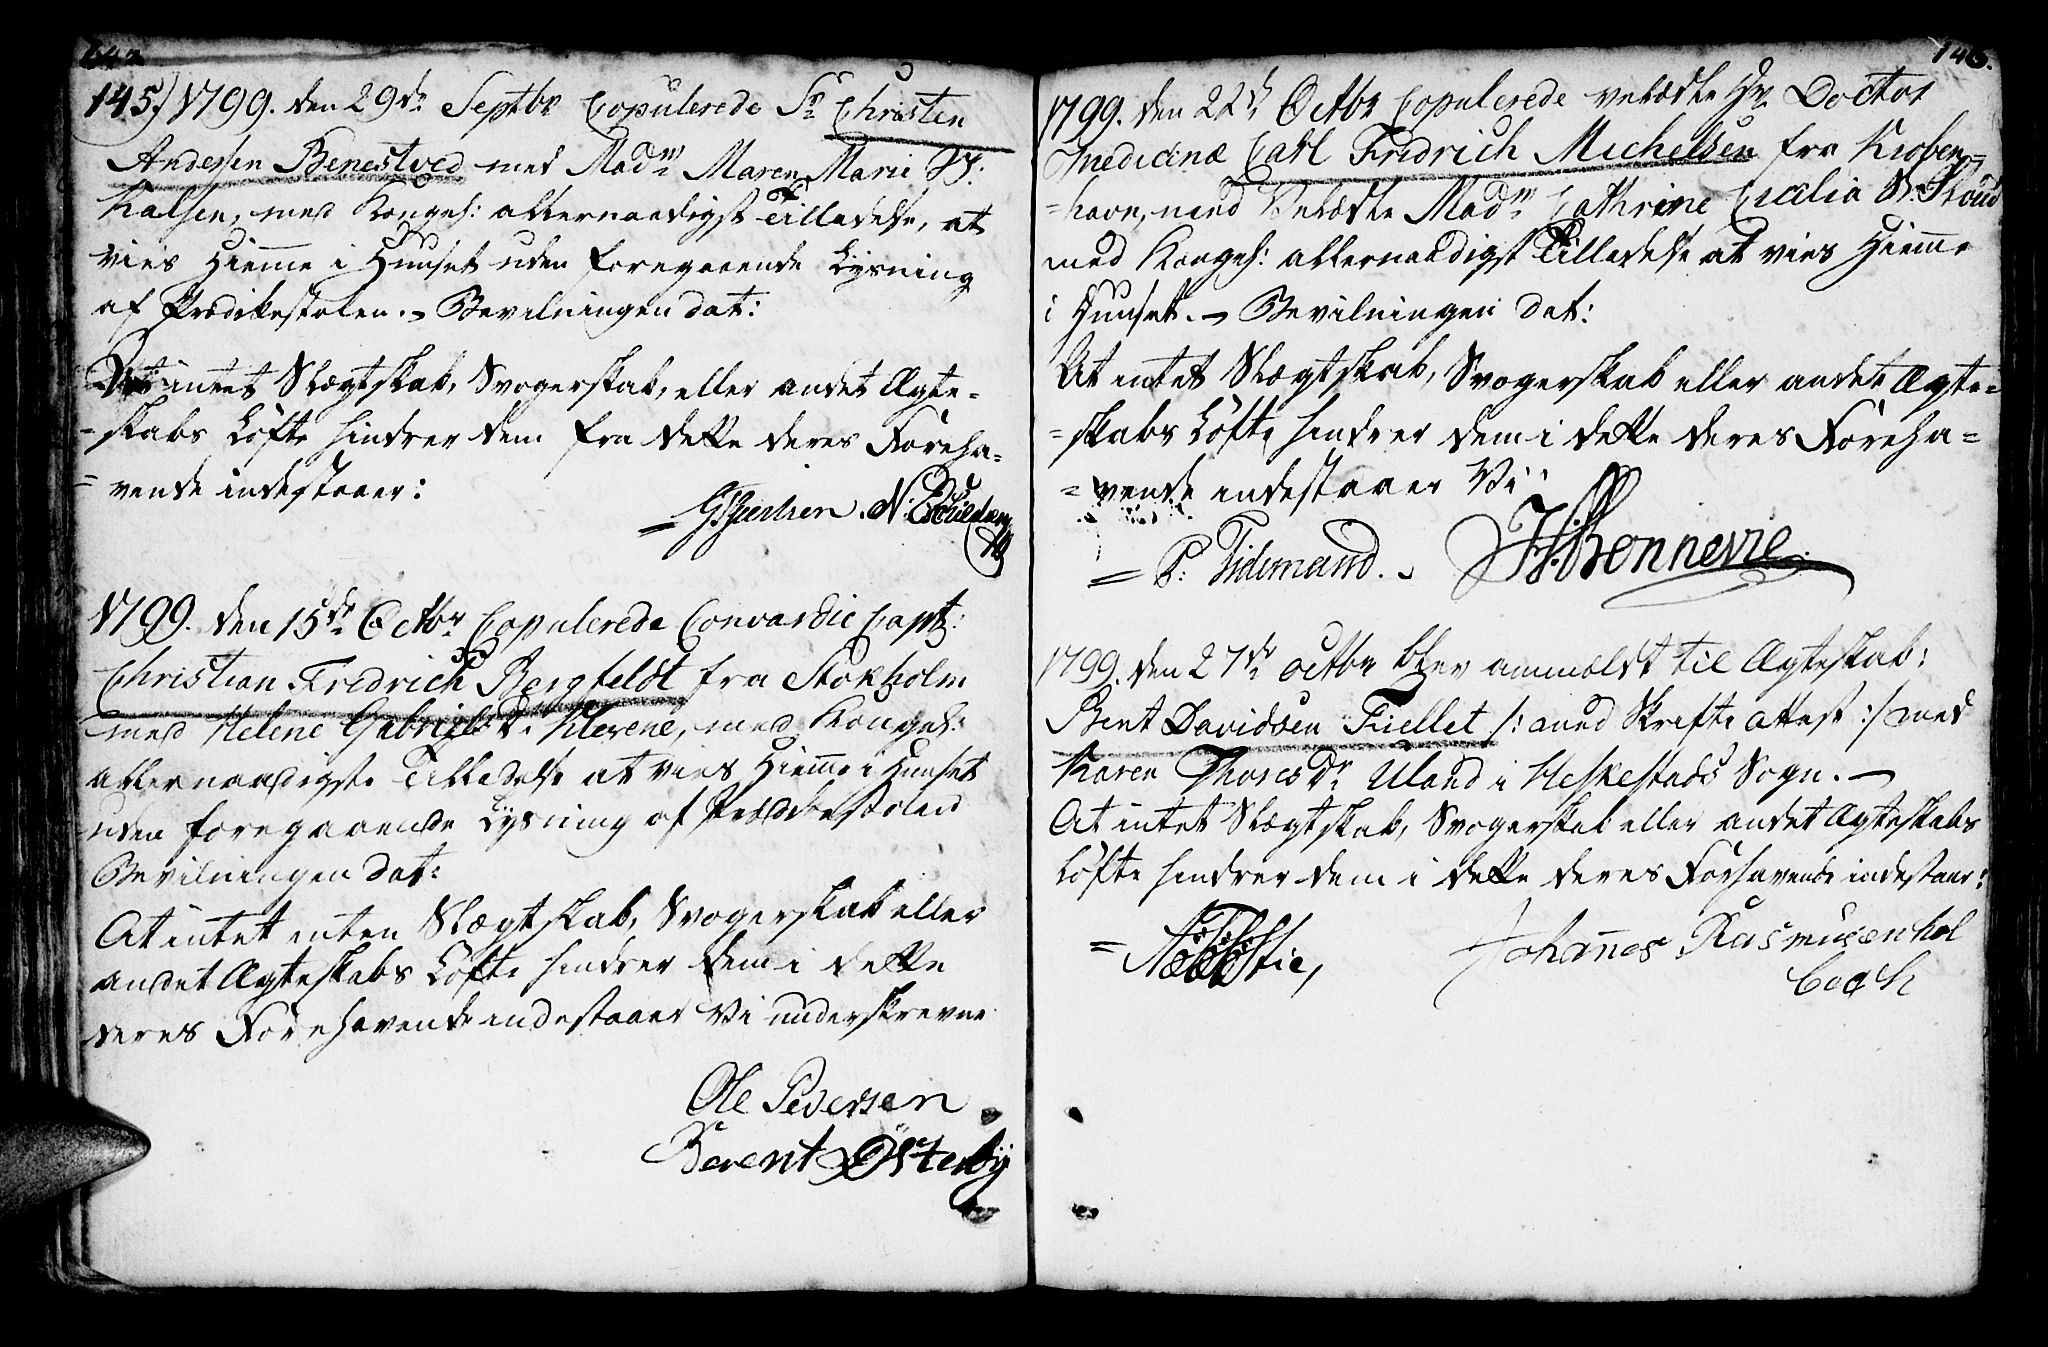 145.) 1799. den 29de Septbr Copulerede Sr Christen
Andersen Benestved med Madm Maren Marie
Kalsen, med Kongel: allernaadigst Tilladelse, at
vies hiemme i Huuset uden foregaaende Lysning
af Prædikestolen. - Bevilningen dat:
At intet Slægtskab, Svogerskab, eller andet Ægte-
-skabs Løfte hindrer dem fra dette deres Foreha-
-vende indestaaer:
1799. den 15de Octbr Copulerede Convardie Capt:
Christian Fredrich Bergfeldt fra Stokholm
med Helene Gabriels Dr Klerene, med Kongel:
allernaadigste Tilladelse at vies hiemme i Huuset
uden foregaaende Lysning af Prædikestolen
Bevilningen dat:
At intet enten Slægtskab, Svogerskab eller
andet Ægteskabs Løfte hindrer dem i dette
deres Forehavende indestaaer Vi underskrevne
Ole Pedersen
Berent Østerbÿ
146.
1799. den 22de Octbr Copulerede velædle Hr. Doctor
Medicinæ Carl Fredrich Michelsen fra Kioben-
-havn, med Velædle Madm Cathrine Cecilia
med Kongel: allernaadigst Tilladelse at vies hiemme
i Huuset. - Bevilningen dat:
At intet Slægtskab, Svogerskab eller andet Ægte-
-skabs Løfte hindrer dem i dette deres Foreha-
-vende indestaaer Vi
= P: Tidemand. H. Bonnevie.
1799. den 27de octbr blev anmældt til Ægteskab:
Bent Davidsen Fuellet /: med Skrifte Attest :/ med
Karen Thores Dr Uland i Heskestads Sogn. -
At intet Slægtskab, Svogerskab eller andet Ægteskabs
Løfte hindrer dem i dette deres Forhavende indestaaer:
Johannes Rasmusen hol